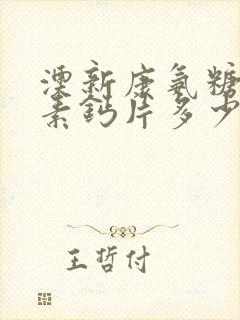 澳新康氨糖
素鈣片多少
王哲付